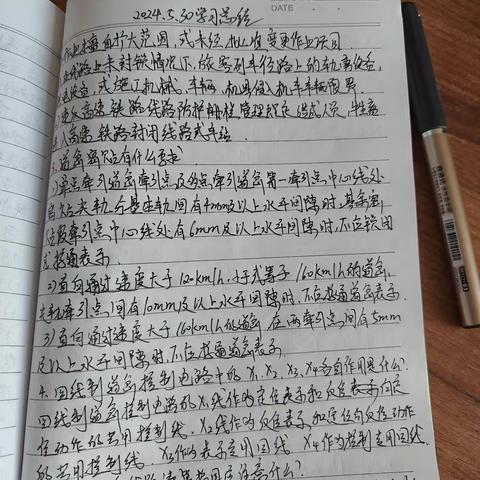 DATE
2024.5.30学习总结
自扩大范围,或未经批准变更作业项目.
线路上未封锁情况下,
或施工机械、车辆、机具侵入机车车辆限界.
违反高速铁路线路防护栅栏管理规定造成人员、牲畜
入高速铁路封闭线路或车站
道岔密贴有什么要求?
1)单点牵引道岔牵引点及多点牵引道岔第一牵引点中心线处
尖轨与基本轨间有4mm及以上水平间隙时,其余密
段牵引点中心线处有6mm及以上水平间隙时,不应锁闭
或接通表示.
2)直向通过速度大于120km/h、小于或等于160km/h的道岔,
牵引点间有10mm及以上水平间隙时,不应接通道岔表示.
3)直向通过速度大于160km/h的道岔,在两牵引点间有5mm
及以上水平间隙时,不应接通道岔表示.
4.四线制道岔控制电路中的X1、X2、X3、X4各自作用是什么?
四线制道岔控制电路的X1线作为定位表示和反位向定
位动作的共用控制线. X2线作为反位表示和定位向反位动作
的共用控制线. X3作为表示专用回线 X4作为控制专用回线.
应注意什么?